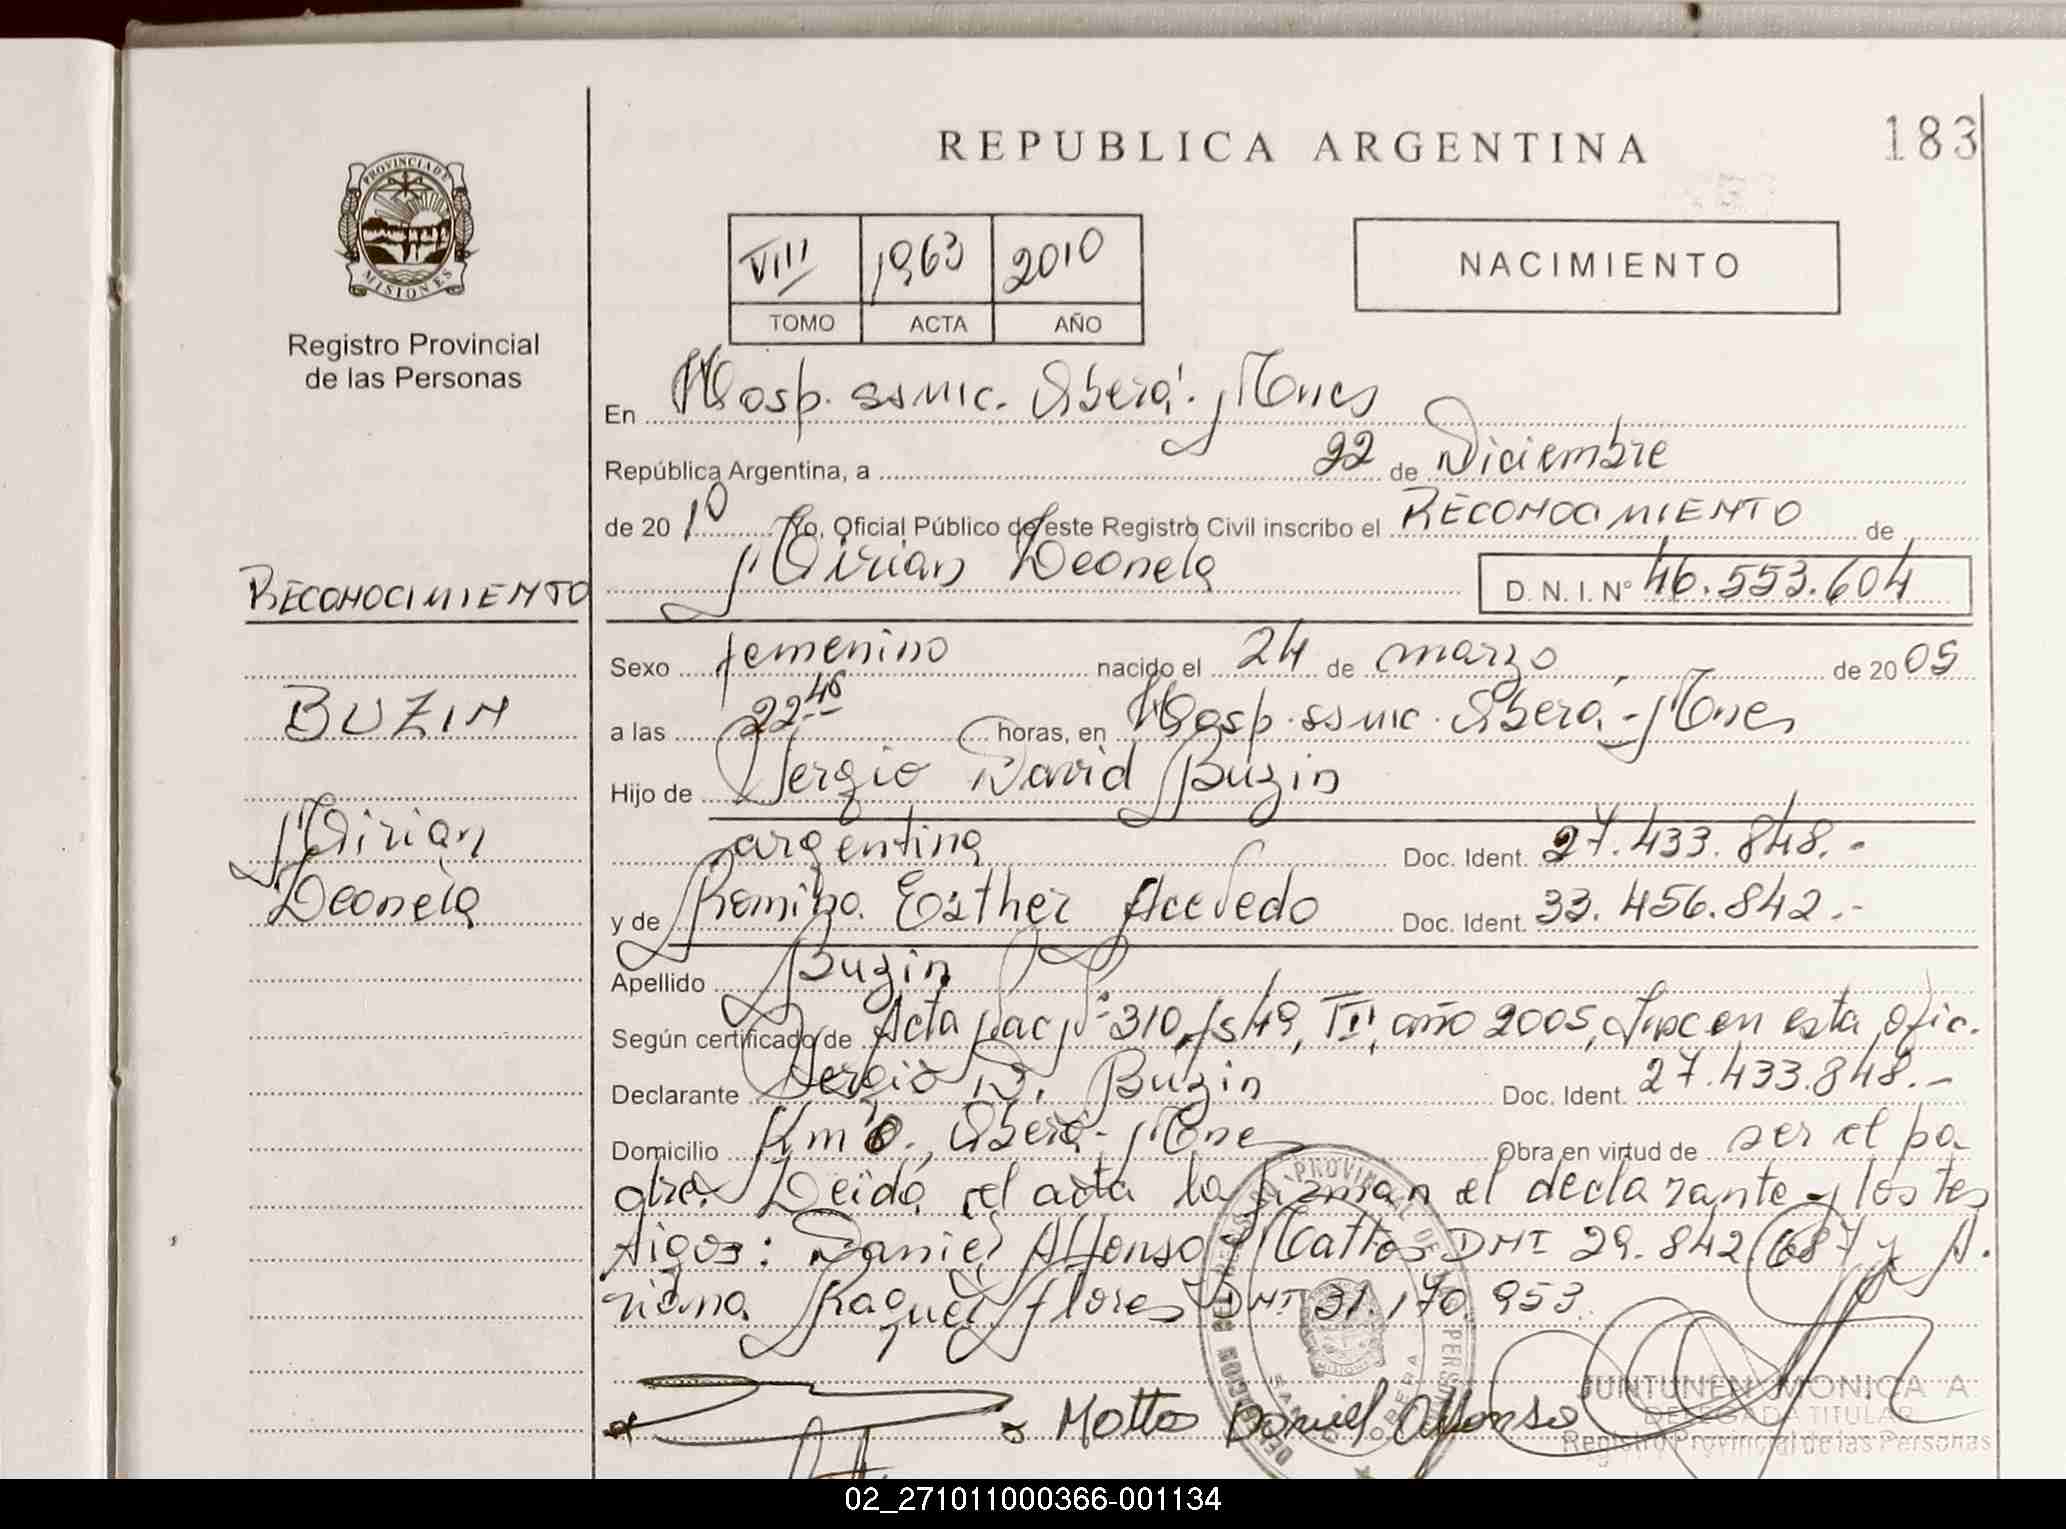 REPUBLICA ARGENTINA
183
PROVINCIA DE
MISIONES
Registro Provincial
de las Personas
VIII 1963 2010
TOMO ACTA AÑO
NACIMIENTO
En Hosp. ssmic. Oberá. Mnes
República Argentina, a 22 de Diciembre
de 2010 Yo, Oficial Público de este Registro Civil inscribo el RECONOCIMIENTO de
Mirian Leonela D. N. I. N° 46.553.604
RECONOCIMIENTO
BUZIN
Mirian
Leonela
Sexo femenino nacido el 24 de marzo de 2005
a las 22 45 horas, en Hosp. ssmic. Oberá - Mnes
Hijo de Sergio David Buzin
argentina Doc. Ident. 27.433.848.-
y de Romina Esther Acevedo Doc. Ident. 33.456.842.-
Apellido Buzin
Según certificado de Acta Nac N° 310, fs 49, TIII, año 2005, Insc en esta ofic.
Declarante Sergio D. Buzin Doc. Ident. 27.433.848.-
Domicilio Km 8., Oberá - Mnes Obra en virtud de ser el pa
dre. Leida el acta la firman el declarante y los tes
tigos: Daniel Alfonso Mattos DNI 29.842.687 y A.
riana Raquel Flores DNI 31.170.953.
Mottos Daniel Alfonso
JUNTUNEN MONICA A
DELEGADA TITULAR
Registro Provincial de las Personas
02_271011000366-001134